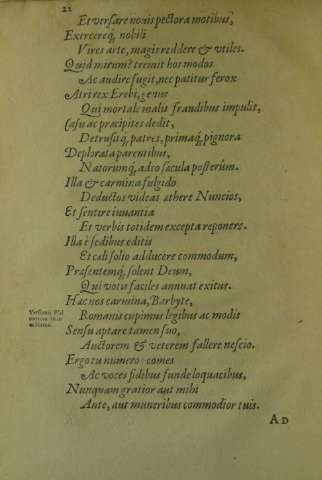 22
Et versare nouis pectora motibus,
Exercereq, nobili
Vires arte, magis reddere & vtiles.
Quid mirum? tremit hos modos
Ac audire fugit, nec patitur ferox
Atri rex Erebi, genus
Qui mortale malis fraudibus impulit,
Casu ac præcipites dedit,
Detrusitq, patres, primaq, pignora
Deplorata parentibus,
Natorumq, adeo sæcula posterûm.
Illa & carmina fulgido
Deductos videas æthere Nuncios,
Et sentire iuuantia
Et verbis totidem excepta reponere.
Illa è sedibus editis
Et cæli solio adducere commodum,
Præsentemq, solent Deum,
Qui votis faciles annuat exitus.
Hac nos carmina, Barbyte,
Romanis cupimus legibus ac modis
Sensu aptare tamen suo,
Auctorem & veterem fallere nescio.
Ergo tu numero: comes
Ac voces fidibus funde loquacibus,
Nunquam gratior aut mihi
Ante, aut muneribus commodior tuis.
Versionis
AD